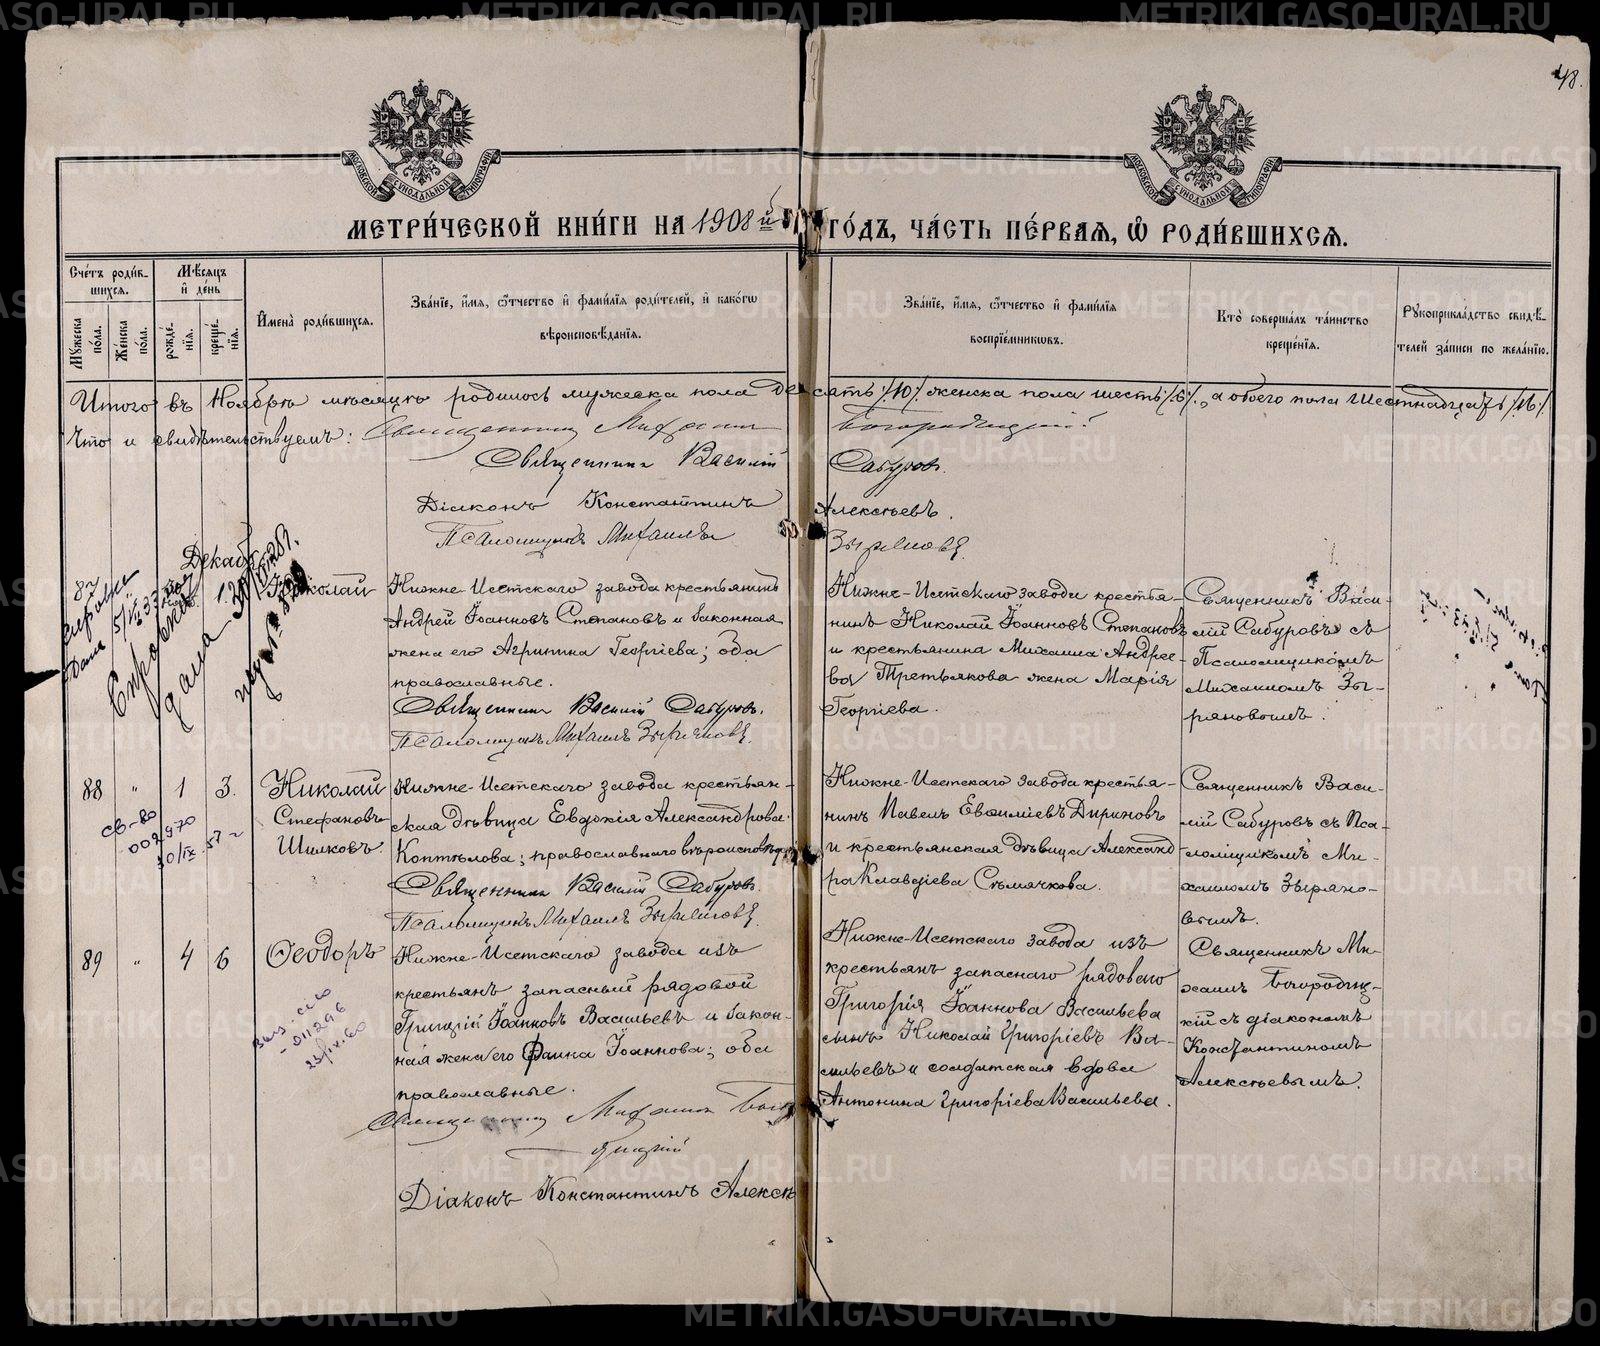 48.
МОСКОВСКОЙ СѴНОДАЛЬНОЙ ТИПОГРАФІИ
МОСКОВСКОЙ СѴНОДАЛЬНОЙ ТИПОГРАФІИ
МЕТРИ́ЧЕСКОЙ КНИ́ГИ НА 1908й ГО́ДЪ, ЧА́СТЬ ПЕ́РВАЯ, Ѡ҆ РОДИ́ВШИХСЯ.
Сче́тъ роди́в-
шихся.
Мѣ́сяцъ
и҆ де́нь
Мꙋ́жеска
по́ла.
Же́нска
по́ла.
рожде́-
нїѧ.
креще́-
нїѧ.
И҆мена̀ роди́вшихся.
Зва́нїе, и҆́мѧ, ѻ҆́тчество и҆ фами́лїѧ роди́телей, и҆ како́гѡ
вѣроисповѣ́данїѧ.
Зва́нїе, и҆́мѧ, ѻ҆́тчество и҆ фами́лїѧ
воспрїе́мникѡвъ.
Кто̀ соверша́лъ та́инство
креще́нїѧ.
Рꙋкоприкла́дство свидѣ́-
телей за́писи по жела́нїю.
Итого въ Ноябрѣ мѣсяцѣ родилось мужеска пола десять /10/ женска пола шесть /6/, а обоего пола Шестнадцать /16/
Что и свидѣтельствуемъ: Священникъ Михаилъ Богородицкій
Священникъ Василій Сабуровъ.
Діаконъ Константинъ Алексѣевъ.
Псаломщикъ Михаилъ Зыряновъ
Декабрь
87
Николай
Нижне-Исетскаго завода крестьянинъ
Андрей Іоанновъ Степановъ и законная
жена его Агрипина Георгіева; оба
православные.
Священникъ Василій Сабуровъ.
Псаломщикъ Михаилъ Зыряновъ.
Нижне-Исетскаго завода крестья-
нинъ Николай Іоанновъ Степановъ
и крестьянина Михаила Андрее-
ва Третьякова жена Марія
Георгіева.
Священникъ Васи-
лій Сабуровъ съ
Псаломщикомъ
Михаиломъ Зы-
ряновымъ.
88 " 1 3.
Николай
Стефановъ
Шилковъ.
св-во
002970
30/IX 57 г
Нижне-Исетскаго завода крестьян-
ская дѣвица Евдокія Александрова
Коптѣлова; православнаго вѣроисповѣд.
Священникъ Василій Сабуровъ.
Псаломщикъ Михаилъ Зыряновъ.
Нижне-Исетскаго завода крестья-
нинъ Павелъ Евѳиміевъ Дириновъ
и крестьянская дѣвица Александ-
ра Клавдіева Сѣмячкова.
Священникъ Васи-
лій Сабуровъ съ Пса-
ломщикомъ Ми-
хаиломъ Зыряно-
вымъ.
89 " 4 6
Ѳеодоръ
Нижне-Исетскаго завода изъ
крестьянъ запасный рядовой
Григорій Іоанновъ Васильевъ и закон-
ная жена его Фаина Іоаннова; оба
православные.
Священникъ Михаилъ Бого-
родицкій
Діаконъ Константинъ Алексѣ
Нижне-Исетскаго завода изъ
крестьянъ запаснаго рядоваго
Григорія Іоаннова Васильева
сынъ Николай Григоріевъ Ва-
сильевъ и солдатская вдова
Антонина Григоріева Васильева.
Священникъ Ми-
хаилъ Богородиц-
кій съ діакономъ
Константиномъ
Алексѣевымъ.
METRIKI.GASO-URAL.RU